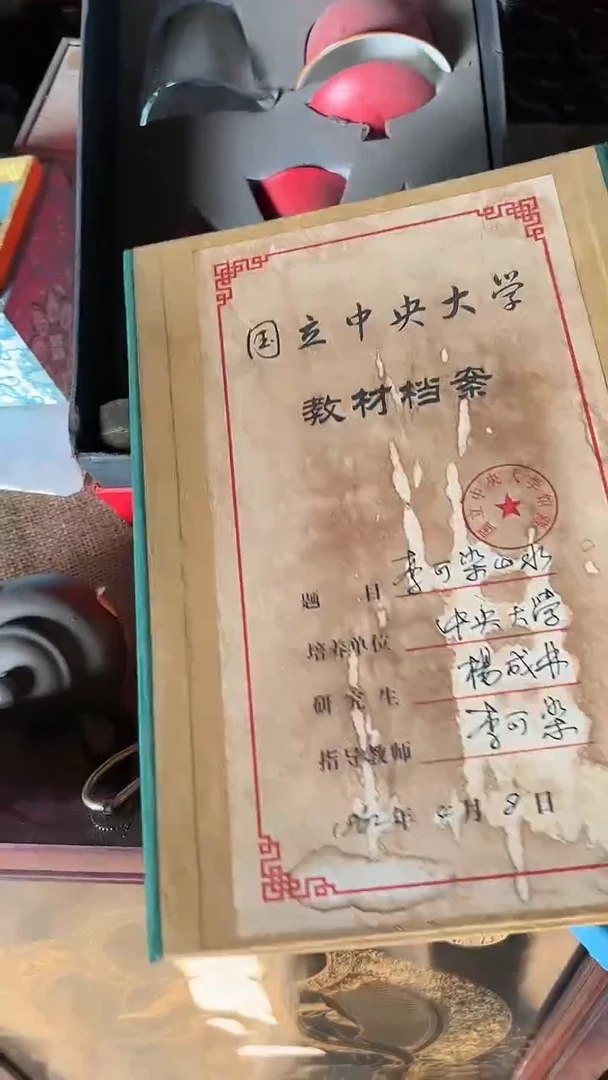 国立中央大学
教材档案
国立中央大学
题目 李可染山水
培养单位 中央大学
研究生 楊成
指导教师 李可染
年 月 8日